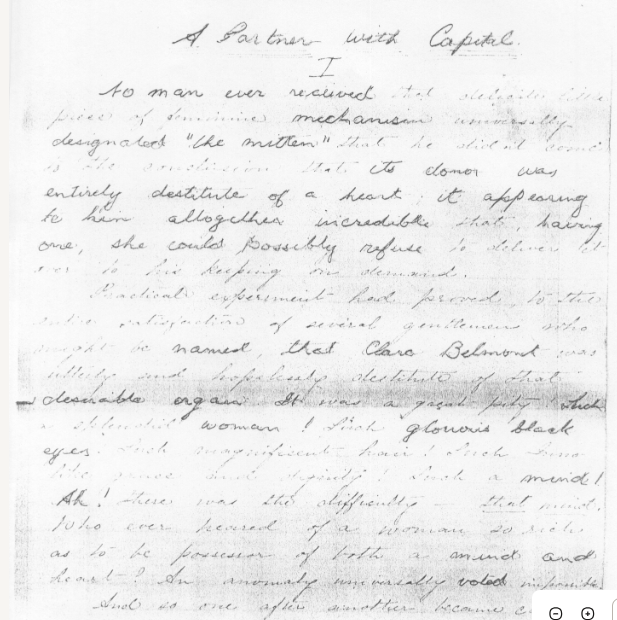 A Partner with Capital.
I
No man ever received that delicate little
piece of feminine mechanism universally
designated "the mitten" that he did not come
to the conclusion that its donor was
entirely destitute of a heart; it appearing
to him altogether incredible that, having
one, she could possibly refuse to deliver it
over to his keeping on demand.
Practical experiment had proved, to the
entire satisfaction of several gentlemen who
might be named, that Clara Belmont was
utterly and hopelessly destitute of that
desirable organ. It was a great pity. Such
a splendid woman! Such glorious black
eyes. Such magnificent hair! Such
like grace and dignity! Such a mind!
Ah! there was the difficulty that mind.
Who ever heared of a woman so rich
as to be possessor of both a mind and
heart? An anomaly universally voted impossible.
And so one after another became